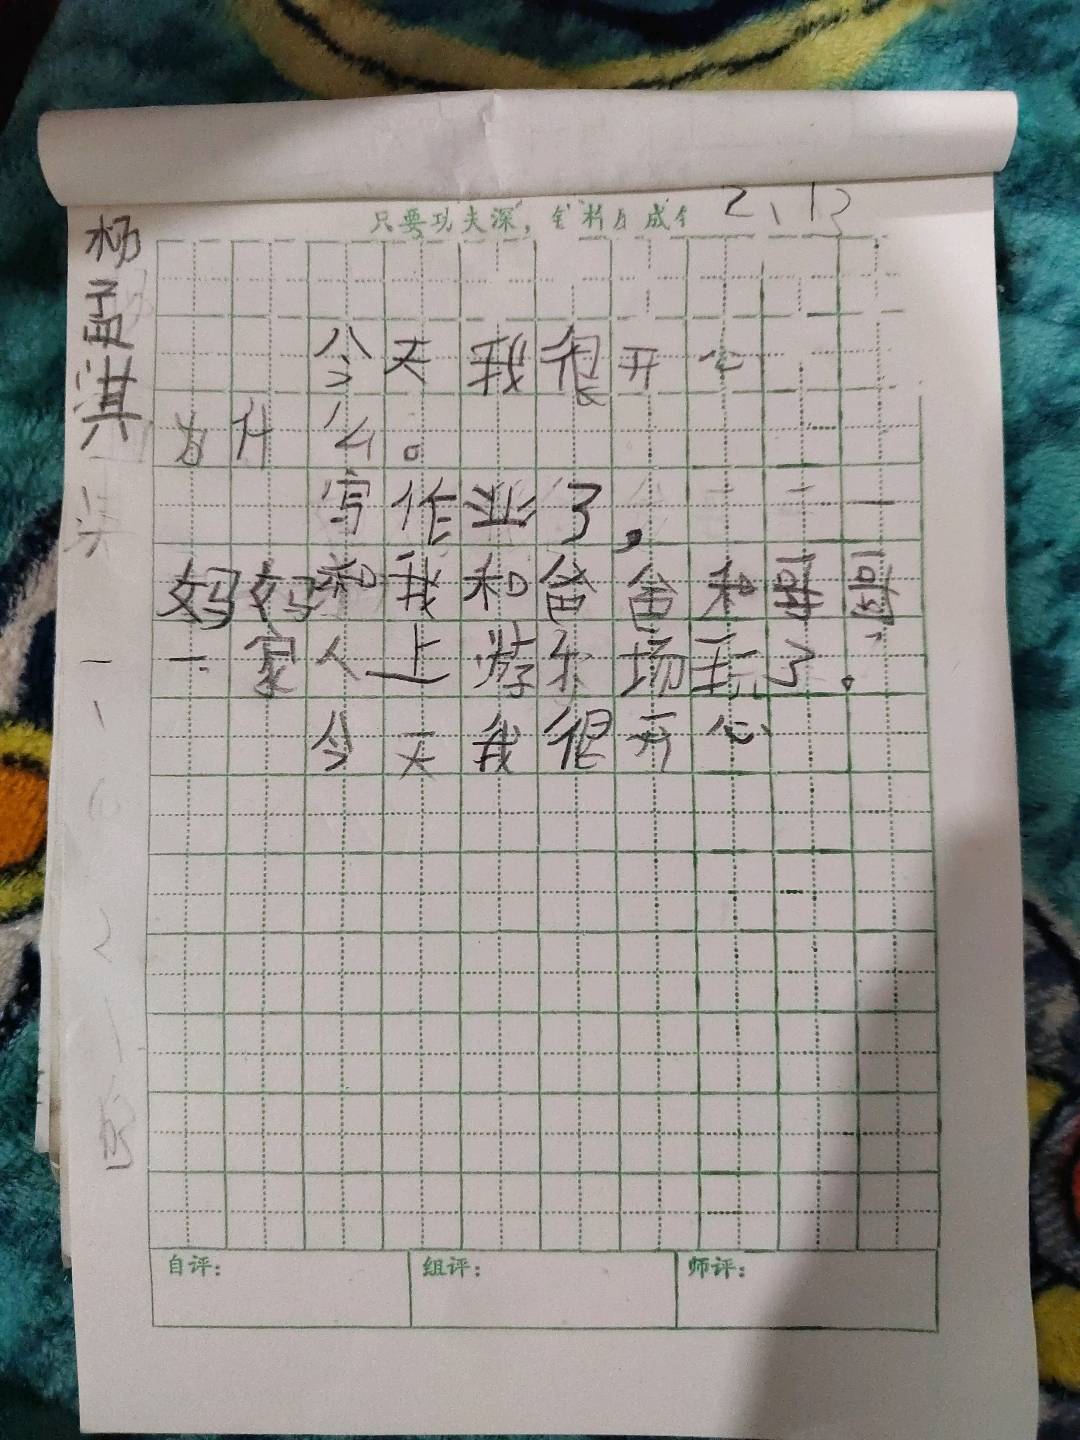 2、13
只要功夫深，
杨孟淇
今天我很开心
为什么。
写作业了，
妈妈和我和爸爸和哥哥
一家人上游乐场玩了。
今天我很开心
自评：
组评：
师评：